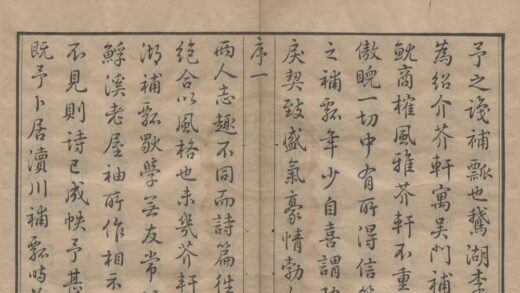 予之識補瓢也鵝湖李
為紹介芥軒寓吳門補
魷商榷風雅芥軒不重
傲睨一切中有所得信筆
之補瓢年少自喜謂
戾契致盛氣豪情勃
序一
兩人志趣不同而詩篇往
絕合以風格也未幾芥軒
湖補瓢歇學無友常
鰕溪老屋袖所作相示
不見則詩已成帙予其
既予卜居瀆川補瓢時